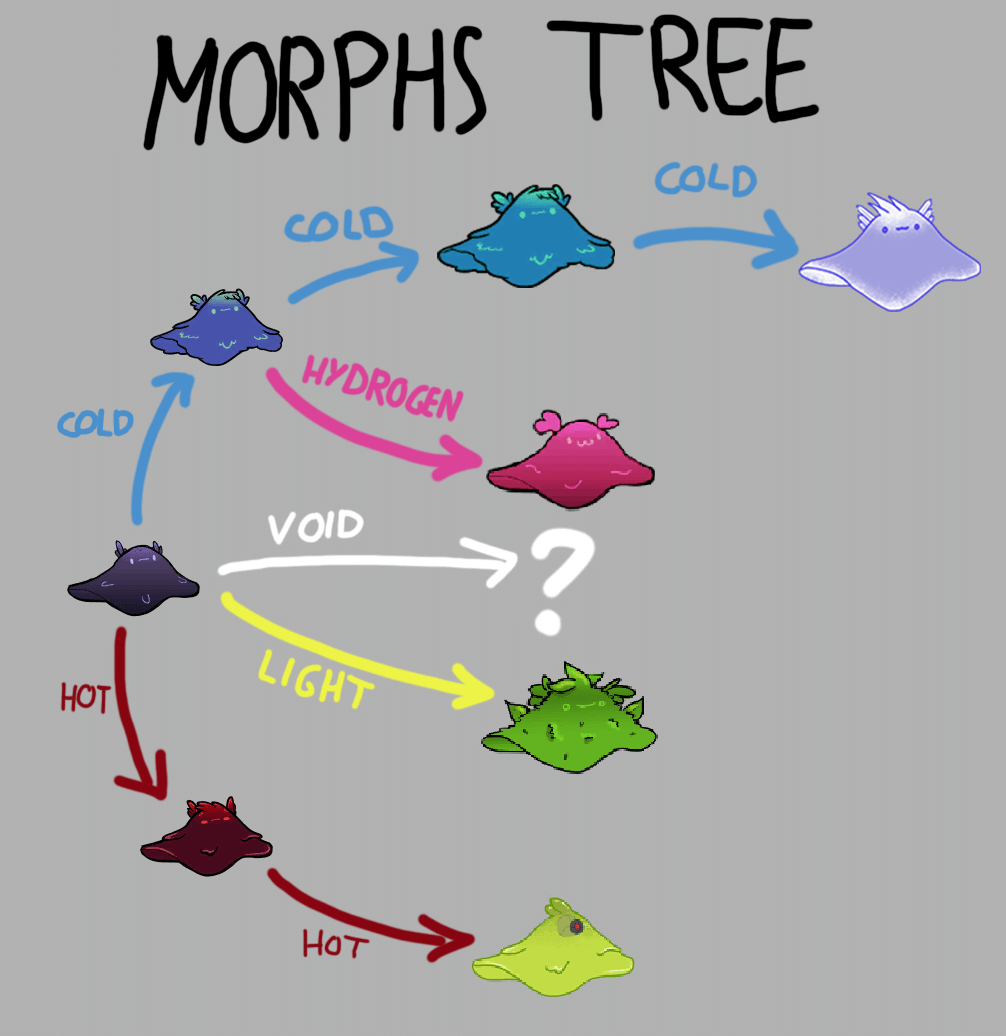 MORPHS TREE
COLD
COLD
HYDROGEN
COLD
VOID
?
LIGHT
HOT
HOT